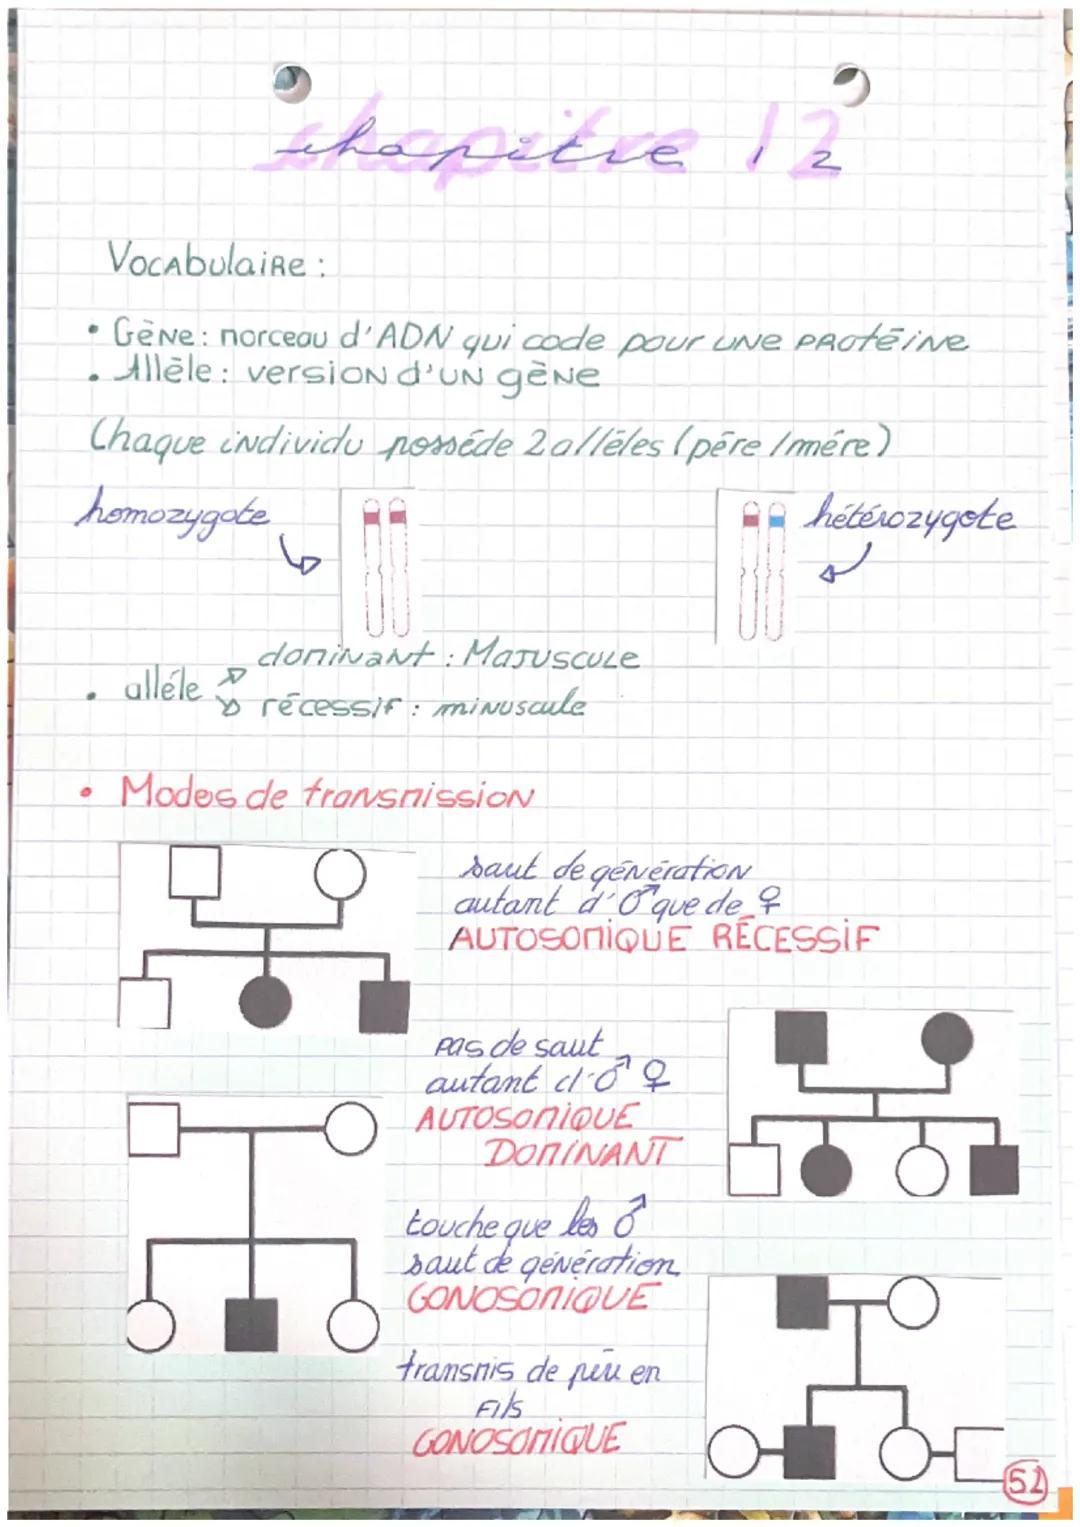 chapitre 12
Vocabulaire :
• Gène : morceau d'ADN qui code pour une protéine
• Allèle : version d'un gène
Chaque individu posséde 2 alléles (pére / mére)
homozygote
hétérozygote
dominant : Majuscule
• alléle
récessif : minuscule
• Modes de transmission
saut de génération
autant d'♂ que de ♀
AUTOSOMIQUE RÉCESSIF
pas de saut
autant d'♂ ♀
AUTOSOMIQUE
DOMINANT
touche que les ♂
saut de génération
GONOSOMIQUE
transmis de père en
Fils
GONOSOMIQUE
52